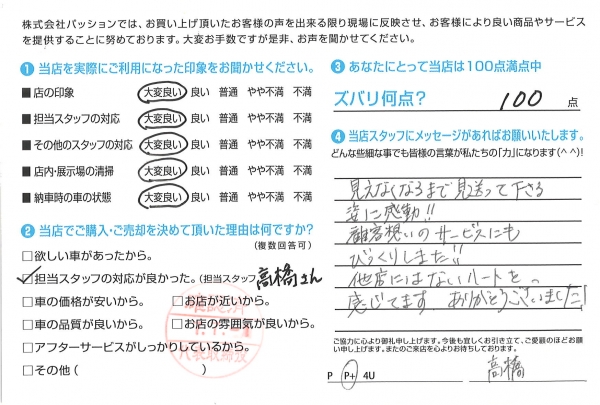 株式会社パッションでは、お買い上げ頂いたお客様の声を出来る限り現場に反映させ、お客様により良い商品やサービス
を提供することに努めております。大変お手数ですが是非、お声を聞かせてください。
1 当店を実際にご利用になった印象をお聞かせください。
■店の印象 大変良い 良い 普通 やや不満 不満
■担当スタッフの対応 大変良い 良い 普通 やや不満 不満
■その他のスタッフの対応 大変良い 良い 普通 やや不満 不満
■店内・展示場の清掃 大変良い 良い 普通 やや不満 不満
■納車時の車の状態 大変良い 良い 普通 やや不満 不満
2 当店でご購入・ご売却を決めて頂いた理由は何ですか?
(複数回答可)
□欲しい車があったから。
□担当スタッフの対応が良かった。(担当スタッフ 高橋さん
□車の価格が安いから。 □お店が近いから。
□車の品質が良いから。 □お店の雰囲気が良いから。
□アフターサービスがしっかりしているから。
□その他( )
3 あなたにとって当店は100点満点中
ズバリ何点? 100 点
4 当店スタッフにメッセージがあればお願いいたします。
どんな些細な事でも皆様の言葉が私たちの「力」になります(^ ^)!
見えなくなるまで見送って下さる
姿に感動!!
顧客想いのサービスにも
びっくりしました!!
他店にはないハートを
感じてます ありがとうございました!
ご協力に心より御礼申し上げます。今後も宜しくお引き立て、ご愛顧のほどお願
い申し上げます。またのご来店を心よりお待ちしております。
P P+ 4U 高橋